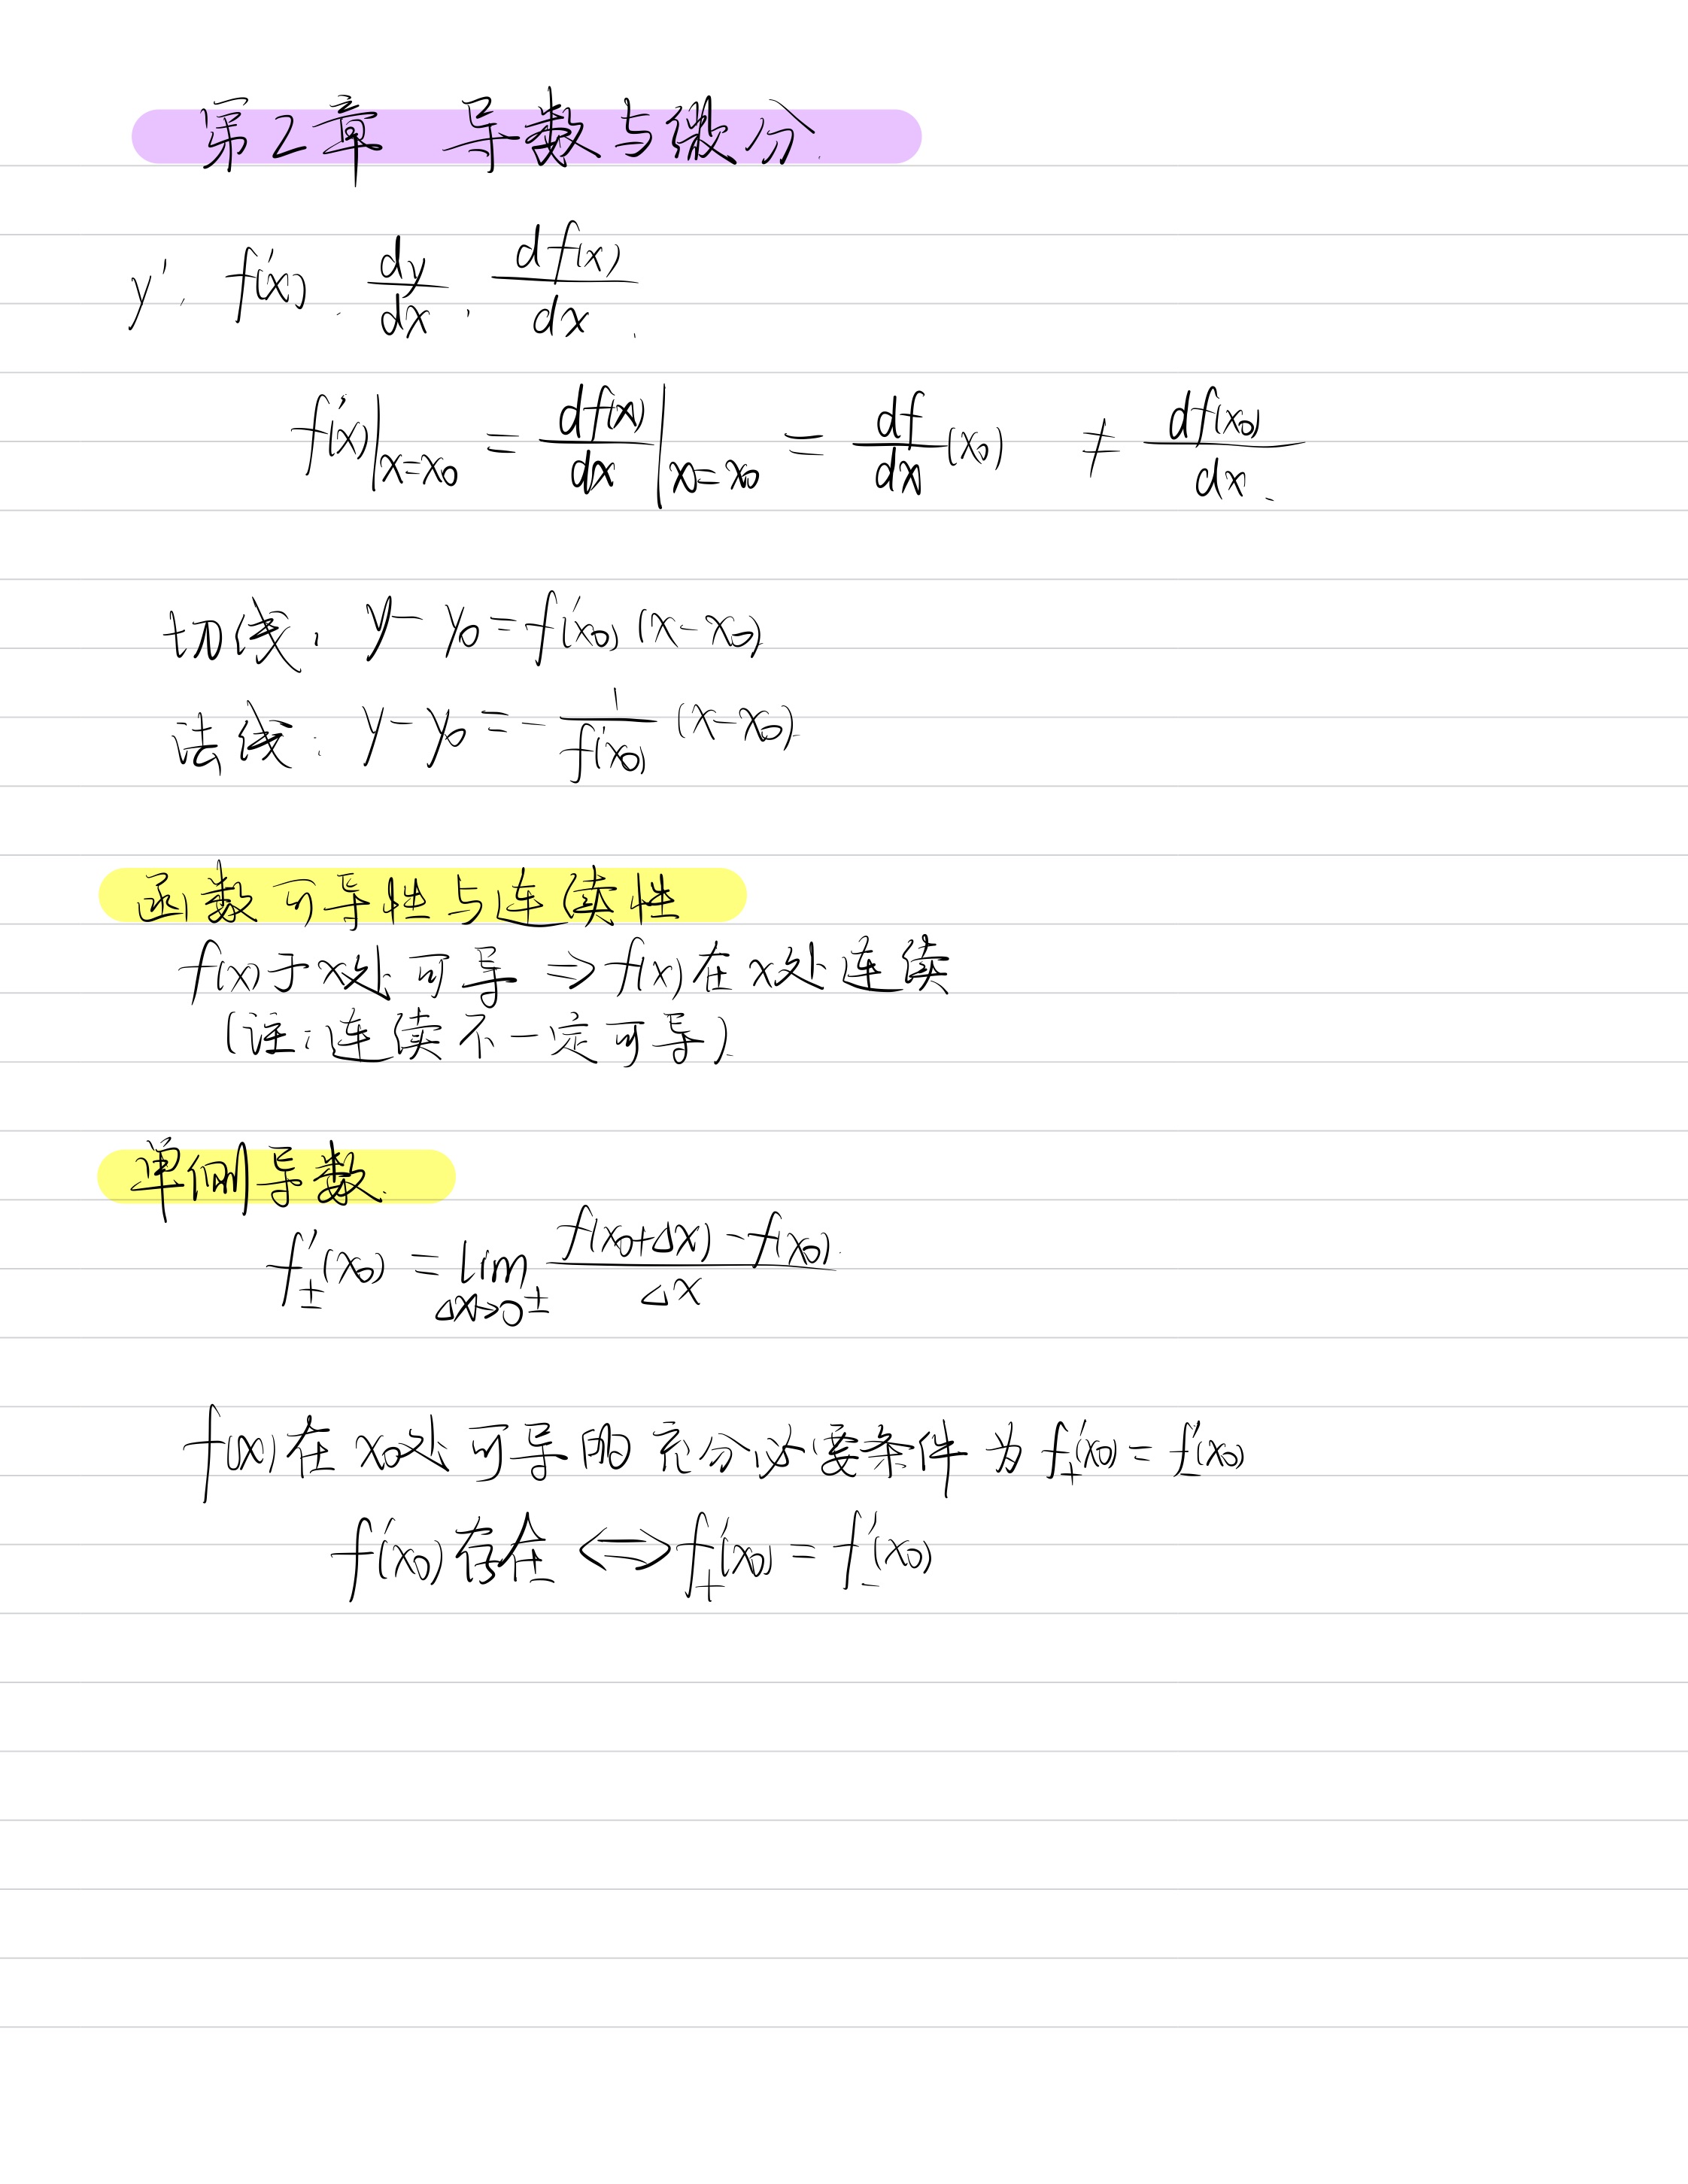 第2章 导数与微分
y'、f'(x)、dy/dx、df(x)/dx.
f'(x)|x=x₀ = df(x)/dx|x=x₀ = df/dx (x₀) ≠ df(x₀)/dx.
切线: y-y₀=f'(x₀)(x-x₀)
法线: y-y₀=-1/f'(x₀) (x-x₀)
函数可导性与连续性
f(x)于x处可导 ⇒ f(x)在x处连续
(注:连续不一定可导)
单侧导数.
f'±(x₀) = lim Δx→0± (f(x₀+Δx)-f(x₀))/Δx
f(x)在x₀处可导的充分必要条件为f'₊(x₀)=f'₋(x₀)
f'(x₀)存在 ⟺ f'₊(x₀)=f'₋(x₀)